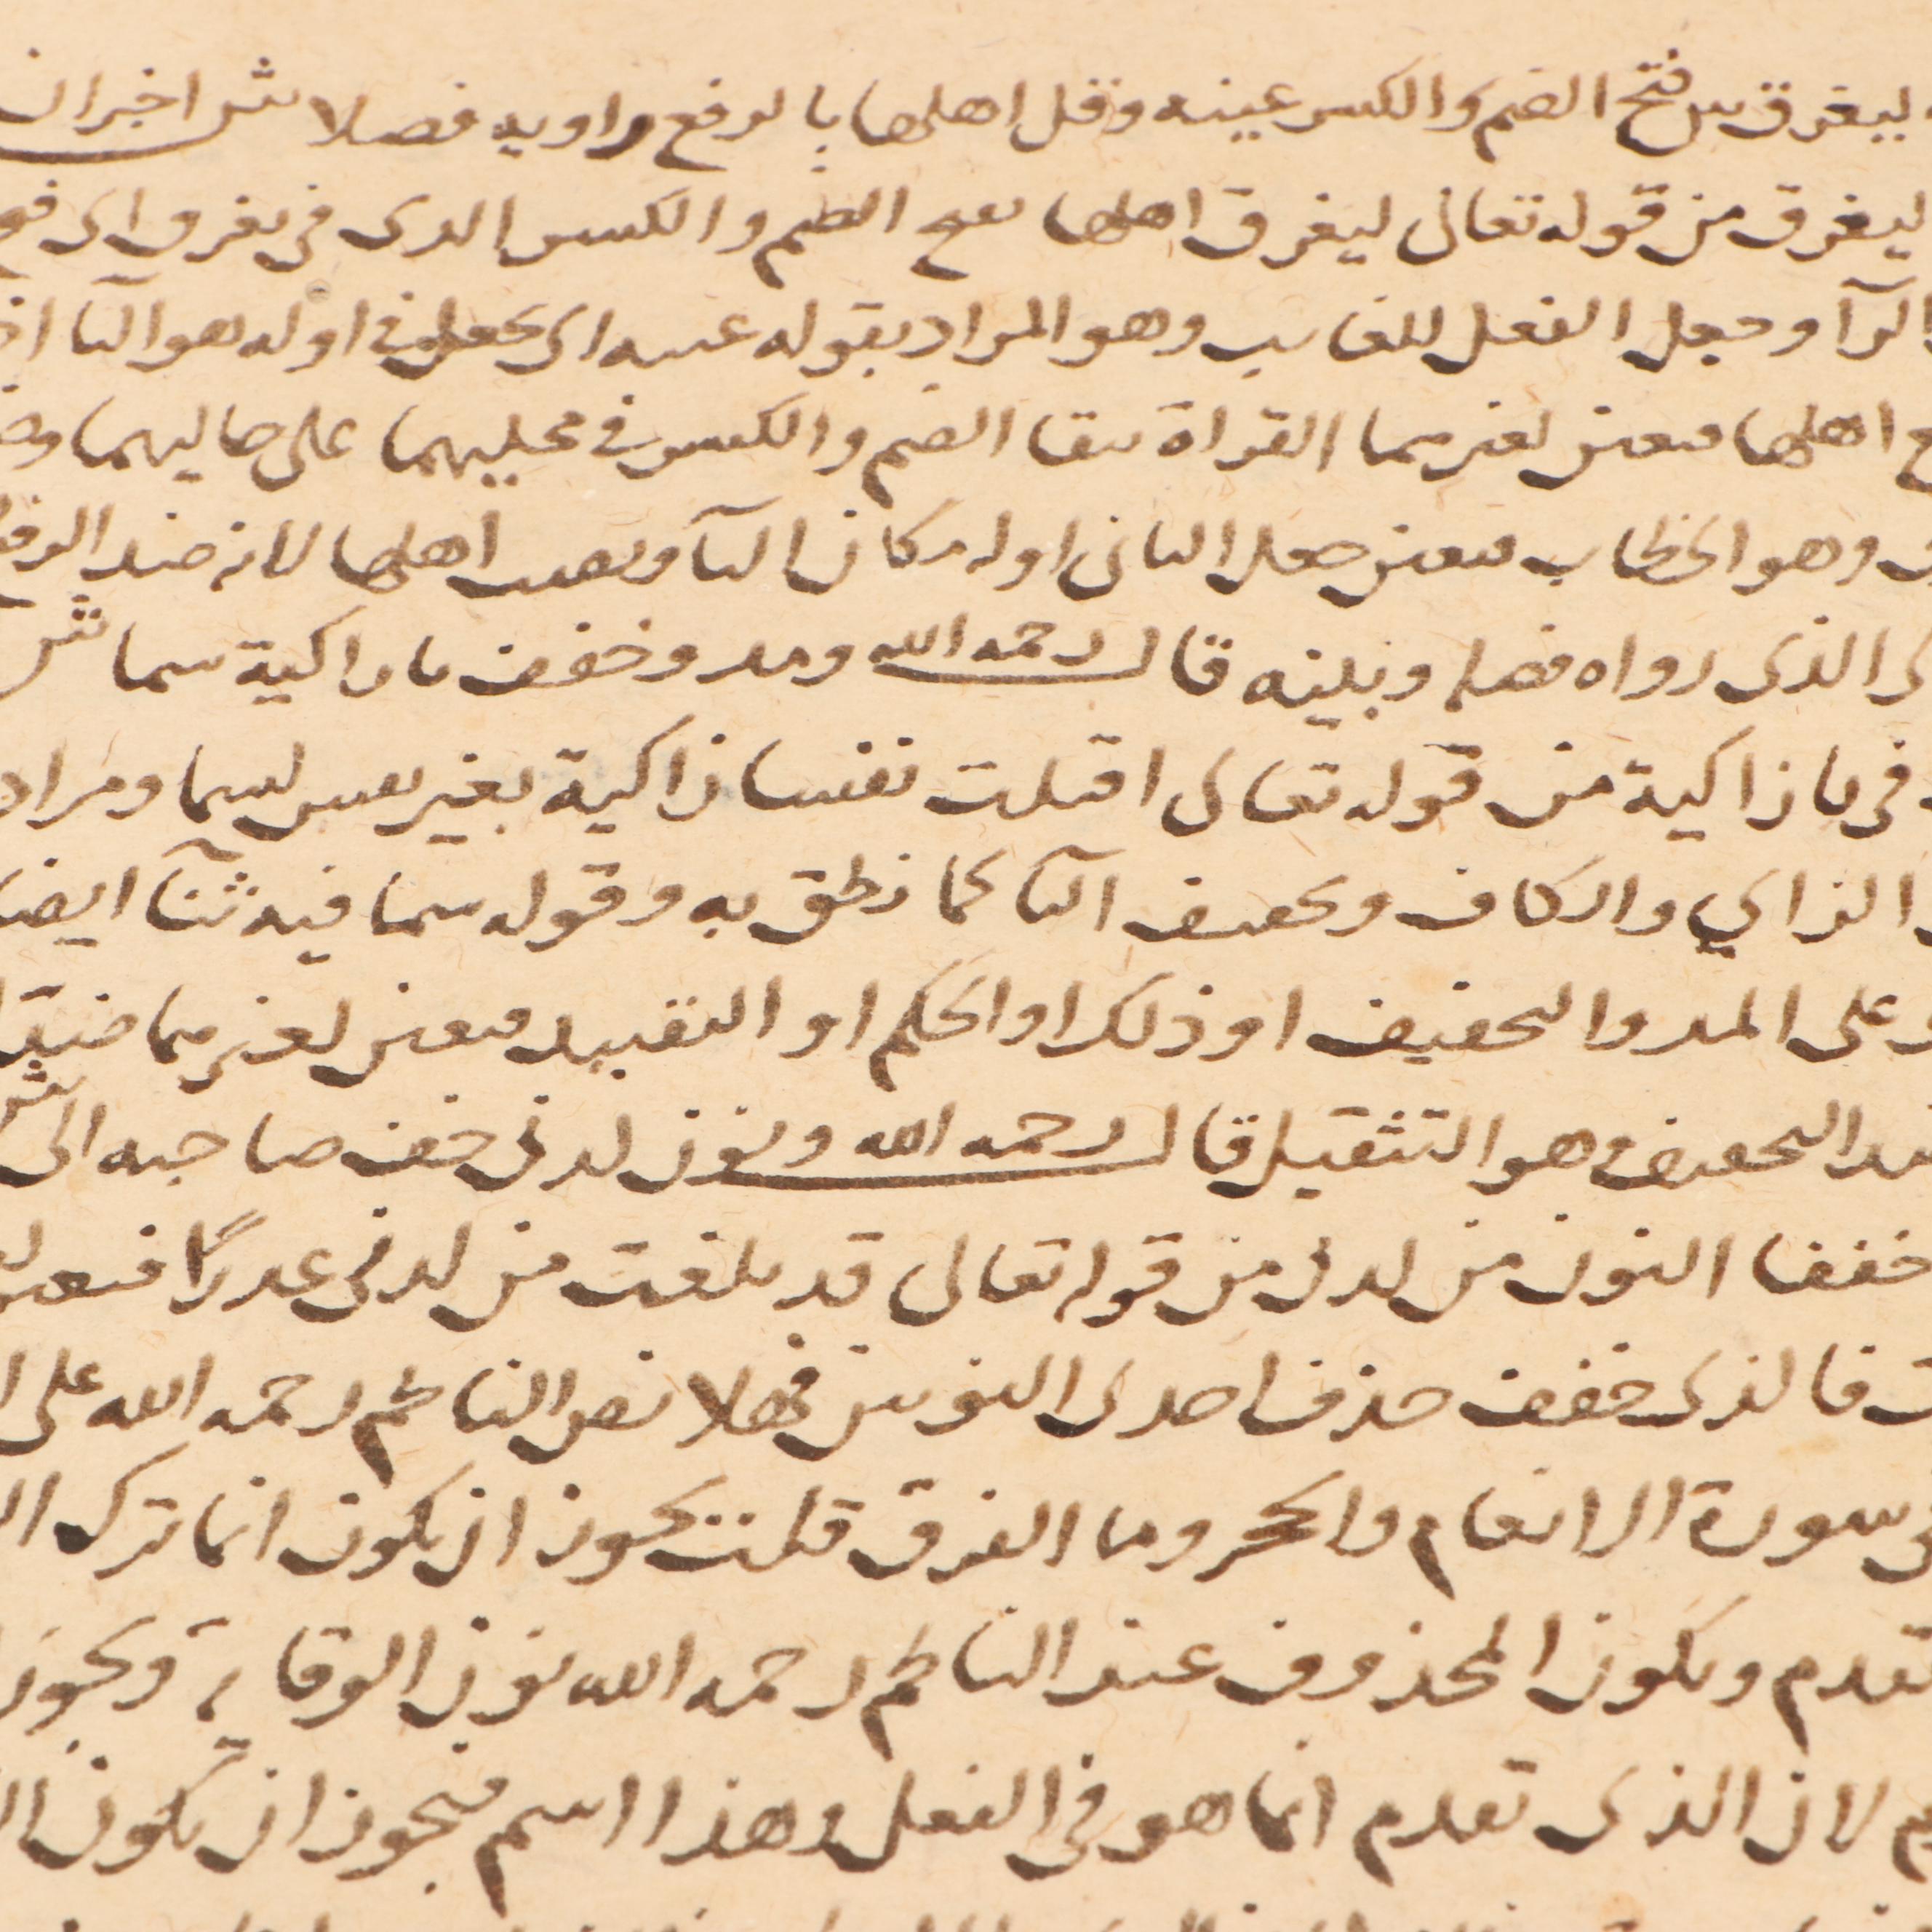 ليغرق من فتح الضم والكسر عينه وقل اهلها بالرفع راويه فصلا ش اخبر ان
ليغرق من قوله تعالى ليغرق اهلها بفتح الضم والكسر الذى فى يغرق اى فتح
الرآ وجعل الفعل للغايب وهو المراد بقوله عينه اى يجعل فى اوله هو اليا
اهلها فتعين لغيرهما القراة ببقا الضم والكسر فى محليهما على حاليهما
وهو الخطاب فتعين جعل التا فى اوله مكان اليآ ونصب اهلها لانه ضد الرفع
الذى رواه فصلا وبينه قال رحمه الله ومد وخفف يا زاكية سما ش
فى يا زاكية من قوله تعالى اقتلت نفسا زاكية بغير نفس لسما ومراد
الزاي والكاف وتخفيف اليا كما نطق به وقوله سما فيه ثنآ ايضا
على المد والتخفيف او ذلك او الحكم او التقييد فتعين لغيرهما ضد
ضد التخفيف وهو التثقيل قال رحمه الله ونون لدنى خف صاحبه الى ش
خففا النون من لدنى من قوله تعالى قد بلغت من لدنى عذرًا فتعين
فالذى خفف حذف احدى النونين فهلا نص الناظم رحمه الله على
سورة الانعام والحجر وما الفرق قلت يجوز ان يكون انما ترك
تقدم ويكون المحذوف عند الناظم رحمه الله نون الوقاية ويجوز
لان الذى تقدم انما هو فى الفعل وهذا اسم فيجوز ان يكون